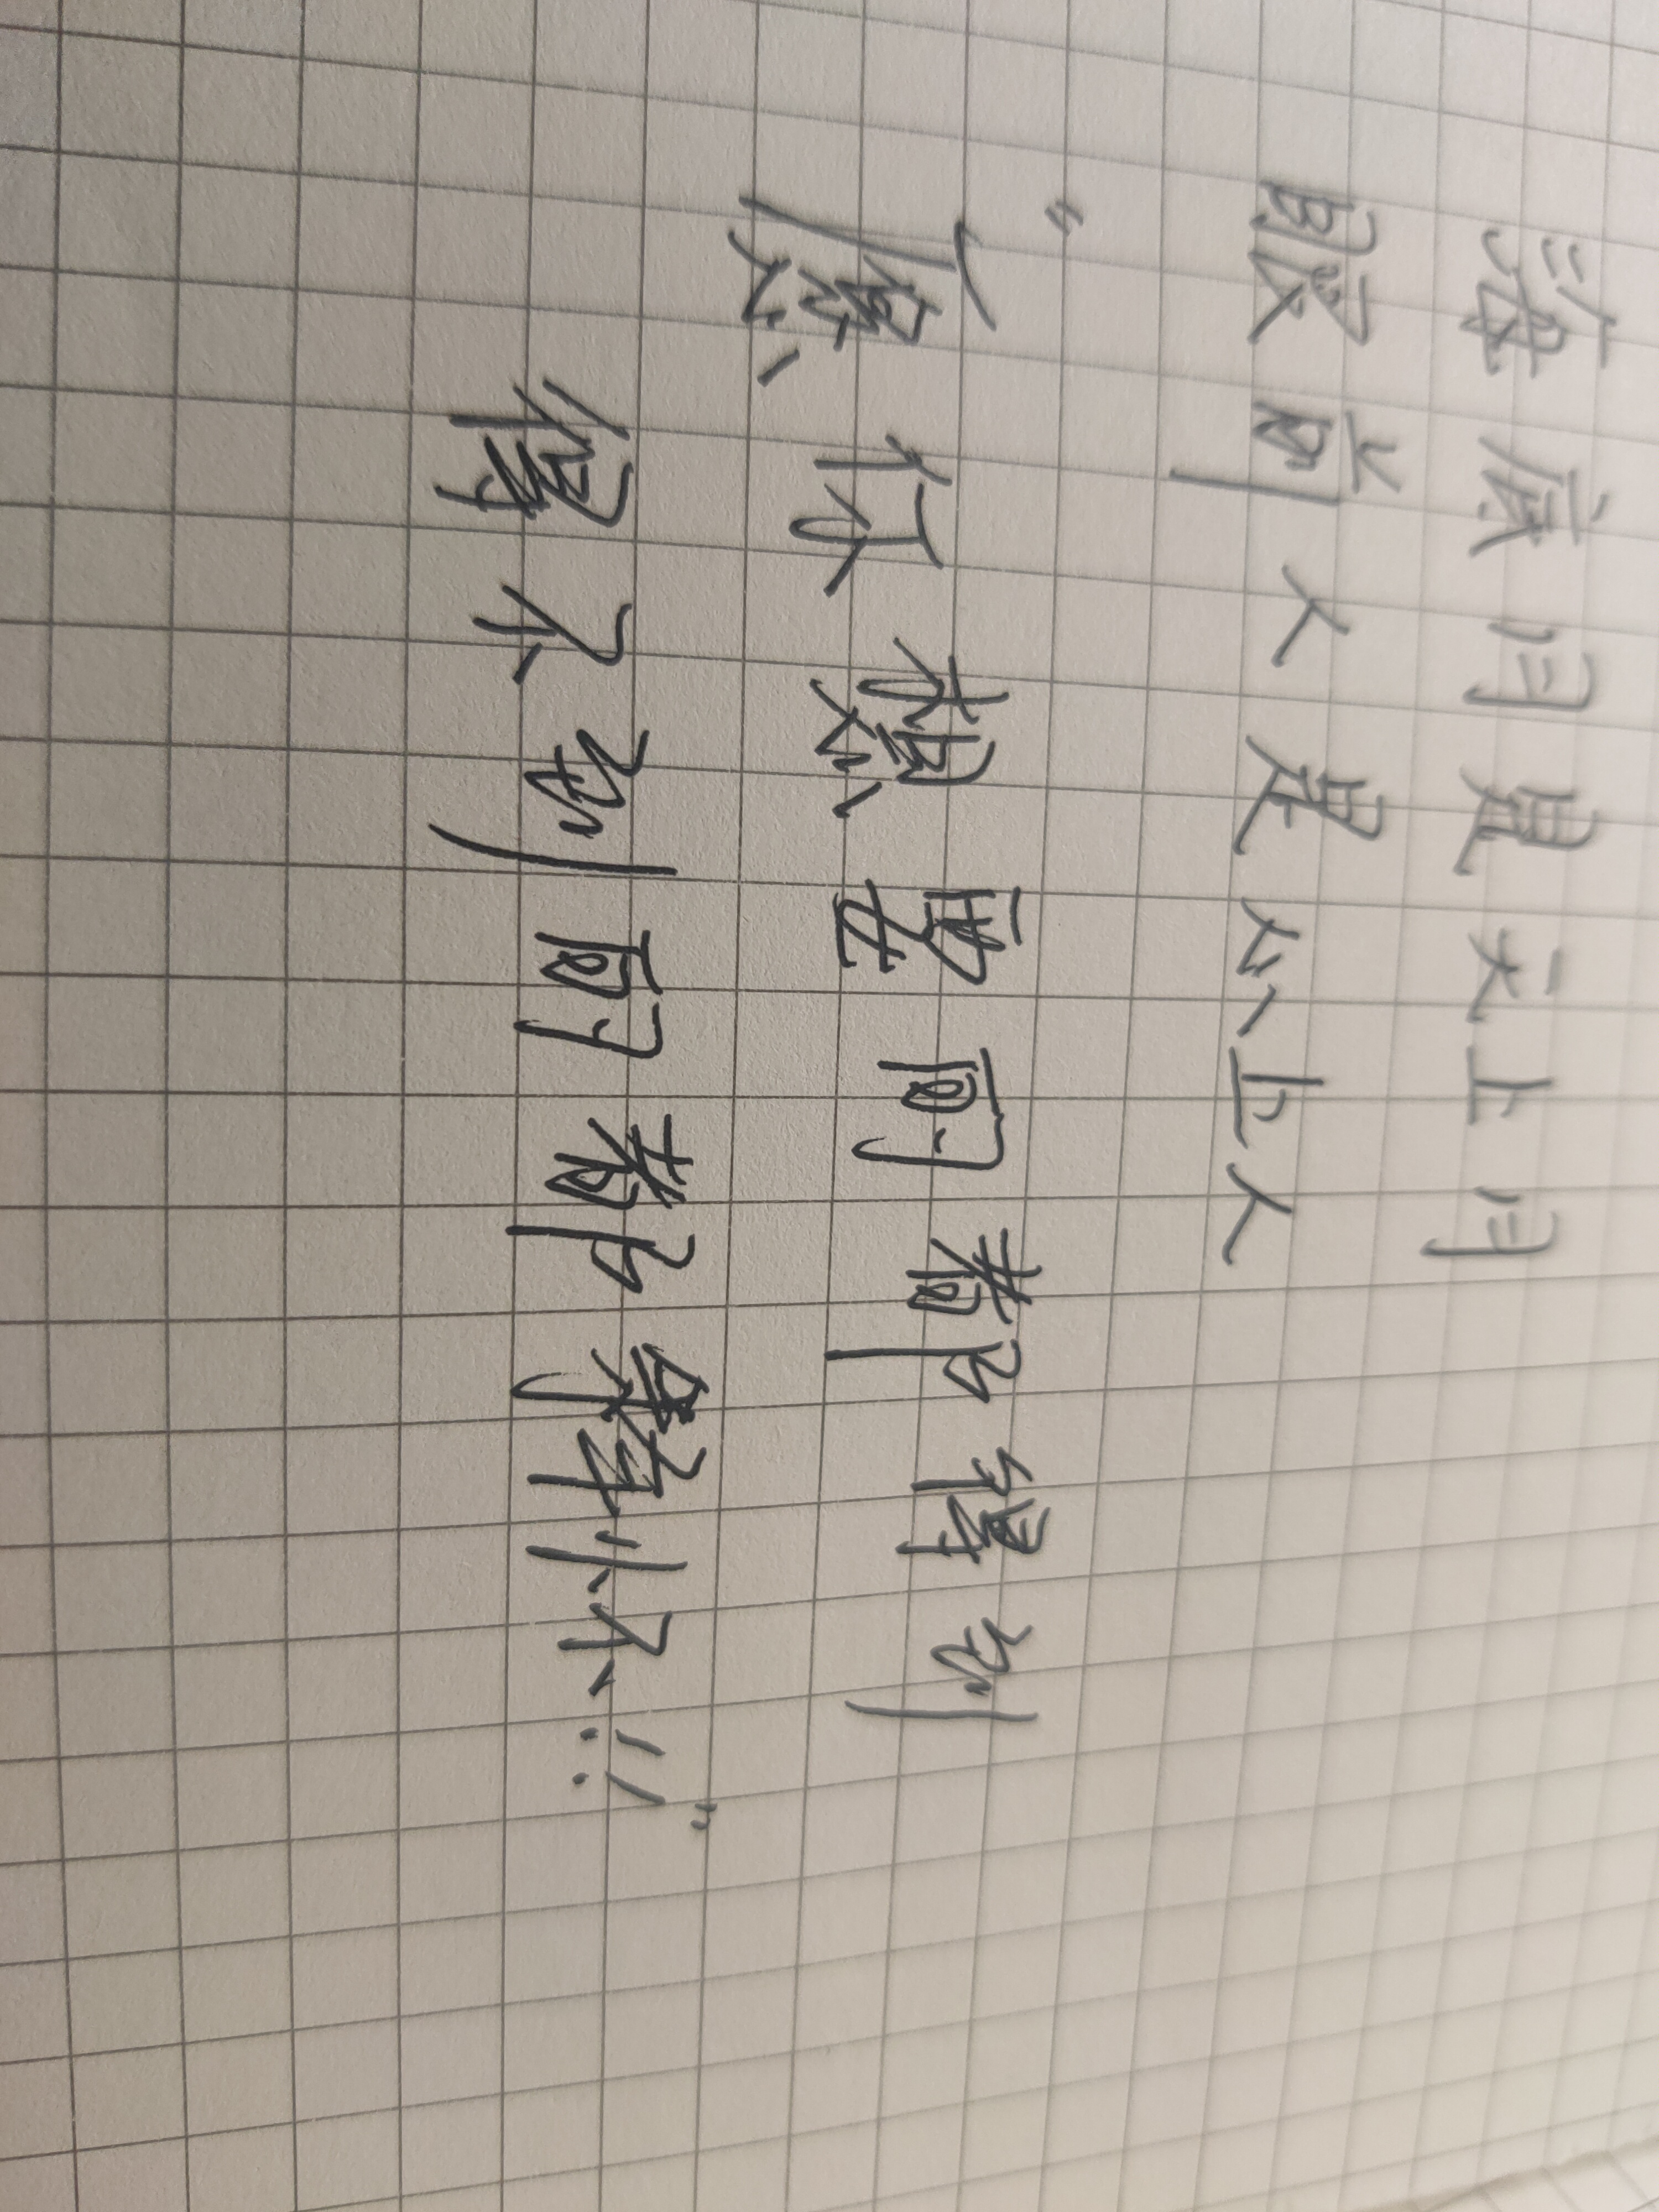 海底月是天上月
眼前人是心上人
“愿你想要的都得到
得不到的都释怀!!”